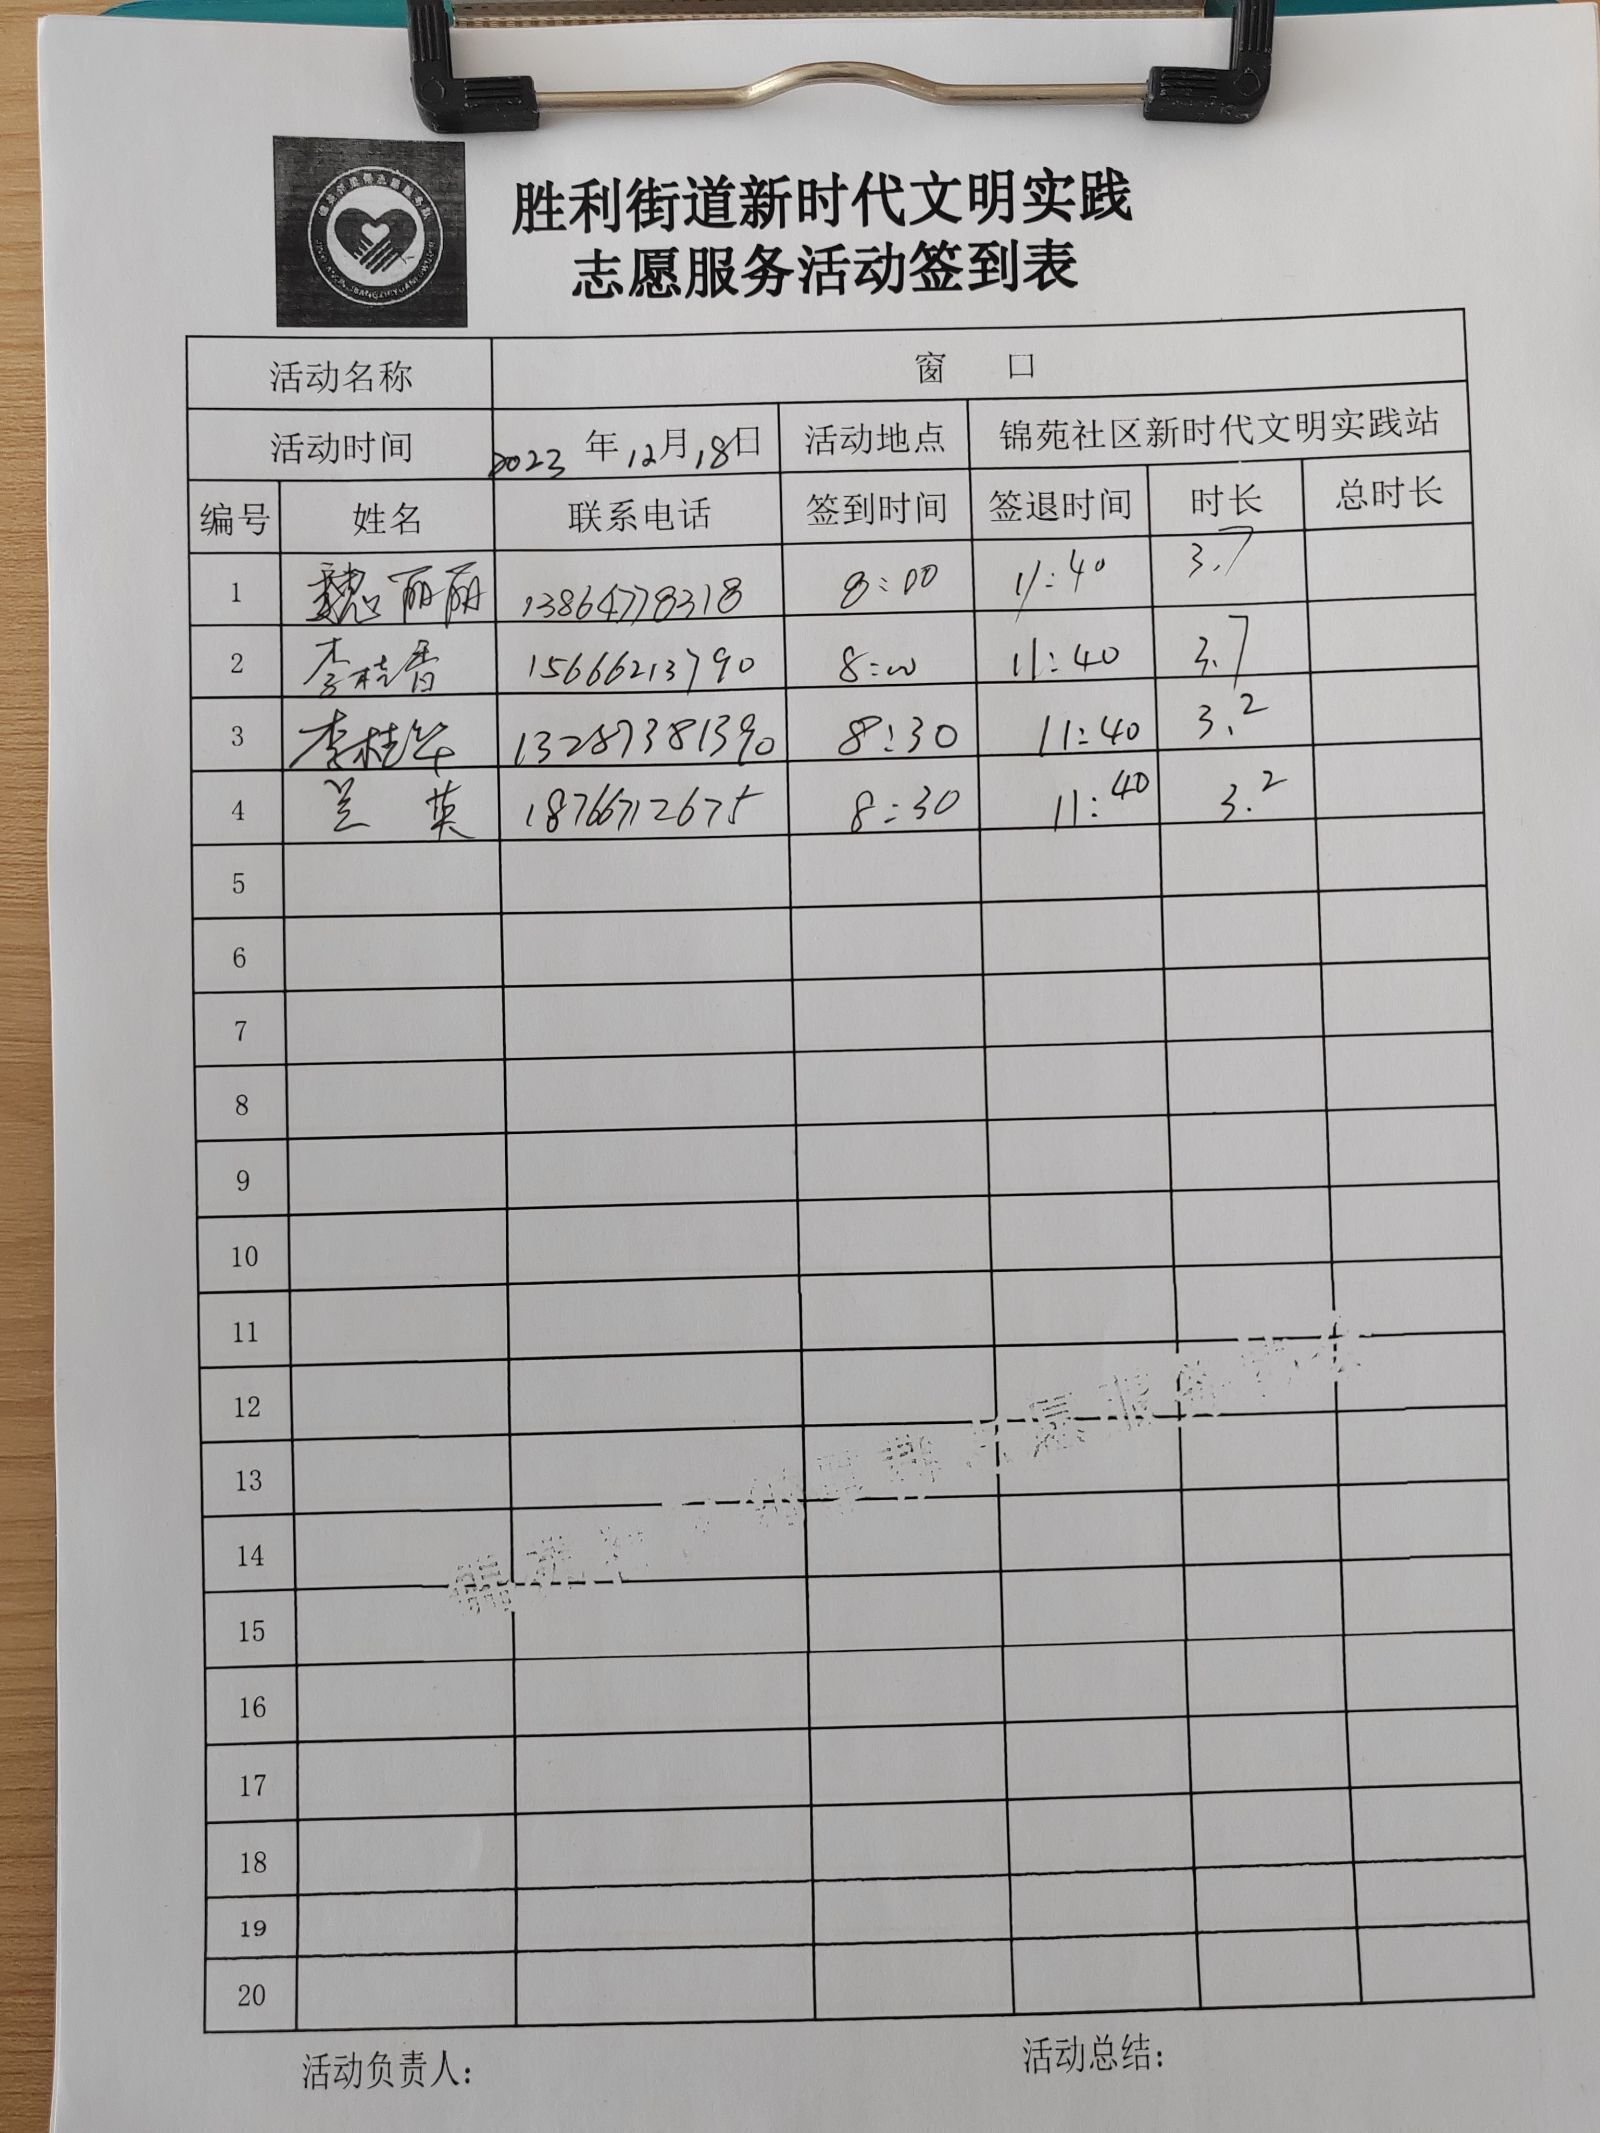 胜利街道新时代文明实践
志愿服务活动签到表
活动名称 窗 口
活动时间 2023 年 12月 18日 活动地点 锦苑社区新时代文明实践站
编号 姓名 联系电话 签到时间 签退时间 时长 总时长
1 魏丽丽 13864778318 8:00 11:40 3.7
2 李桂香 15666213790 8:00 11:40 3.7
3 李桂华 13287381390 8:30 11:40 3.2
4 兰 英 18766712675 8:30 11:40 3.2
5
6
7
8
9
10
11
12
13
14
15
16
17
18
19
20
活动负责人: 活动总结: